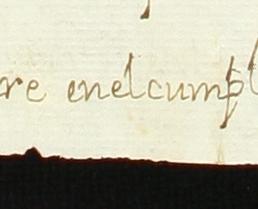 re enelcumpl